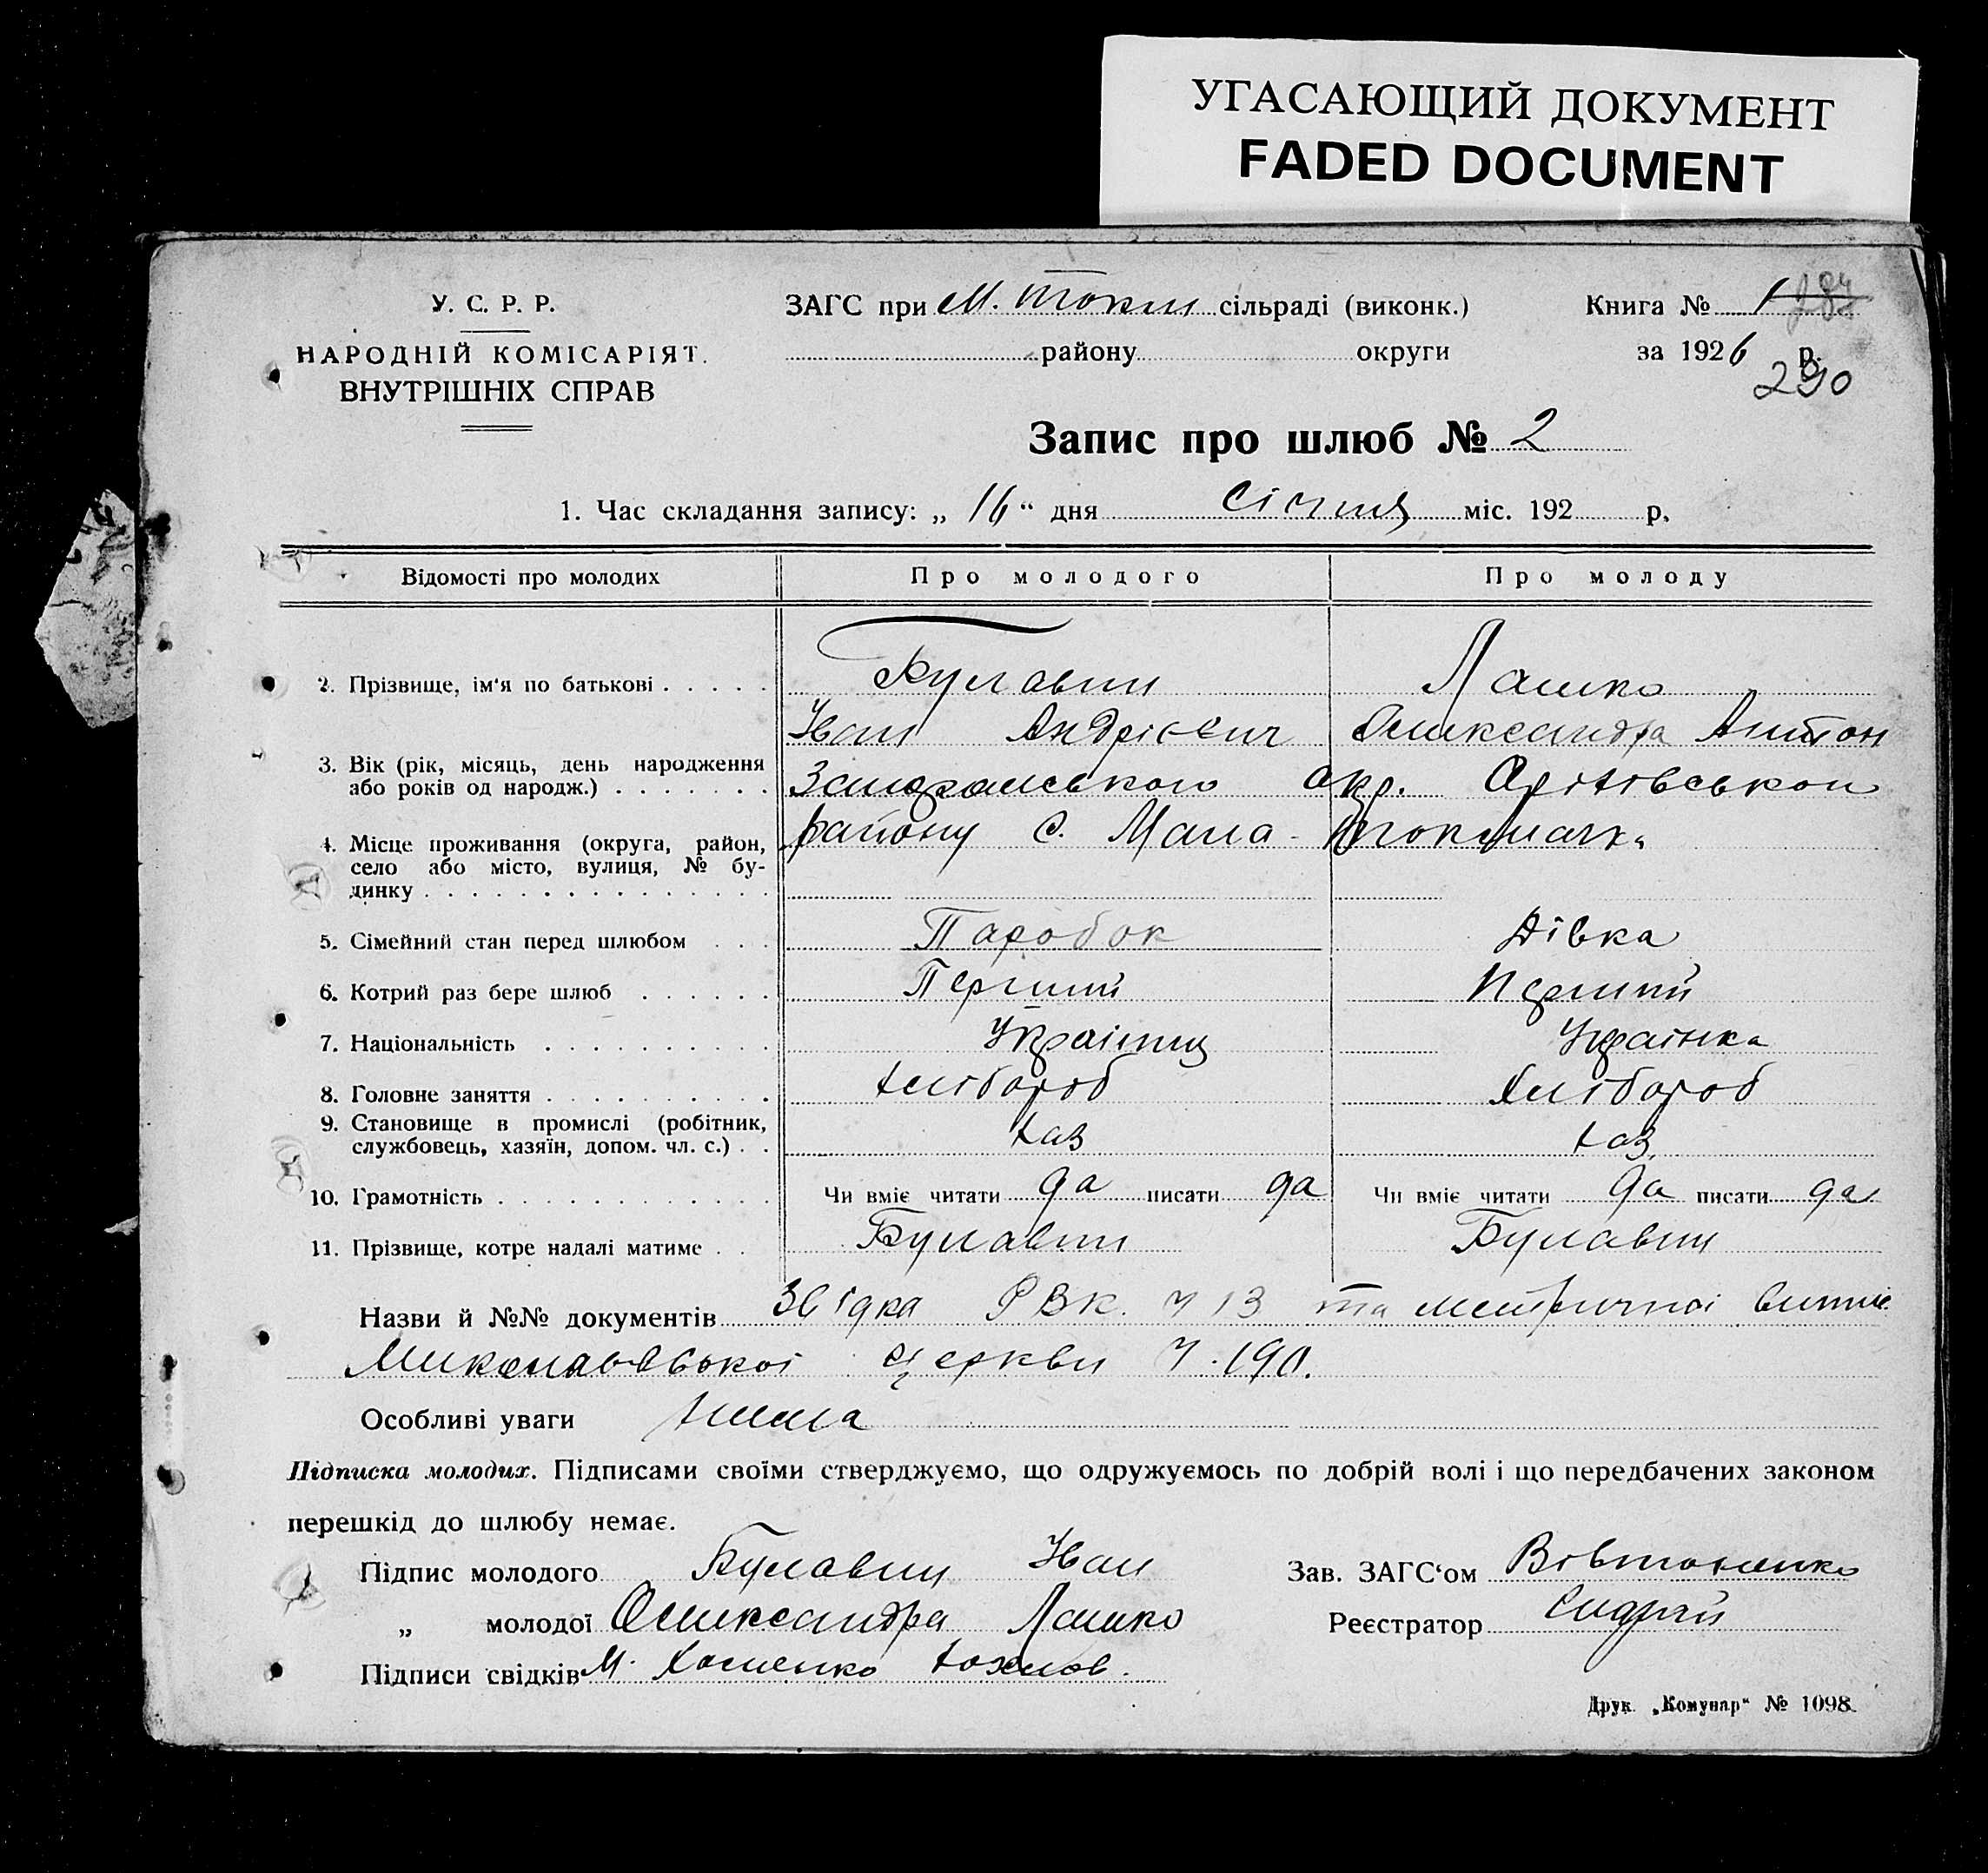 УГАСАЮЩИЙ ДОКУМЕНТ
FADED DOCUMENT
У. С. Р. Р.
НАРОДНІЙ КОМІСАРІЯТ
ВНУТРІШНІХ СПРАВ
ЗАГС при М. Токм сільраді (виконк.)
району округи
Книга № 1
за 1926 р.
290
Запис про шлюб № 2
1. Час складання запису: „ 16 “ дня Січня міс. 192 р.
Відомості про молодих Про молодого Про молоду
2. Прізвище, ім'я по батькові . . . . . Булавин Лашко
Иван Андрієвич Олександра Антон
3. Вік (рік, місяць, день народження
або років од народж.) . . . . . . . Запоромського окр. Оріхівського
району с. Мала-Токмачка
4. Місце проживання (округа, район,
село або місто, вулиця, № бу-
динку . . . . . . . . . . . . . . .
5. Сімейний стан перед шлюбом . . . Паробок Дівка
6. Котрий раз бере шлюб . . . . . . Перший Перший
7. Національність . . . . . . . . . . Українць Українка
8. Головне заняття . . . . . . . . . . Хлібороб Хлібороб
9. Становище в промислі (робітник,
службовець, хазяїн, допом. чл. с.) . . Хаз Хаз.
10. Грамотність . . . . . . . . . . . . Чи вміє читати да писати да Чи вміє читати да писати да
11. Прізвище, котре надалі матиме . . Булавин Булавин
Назви й №№ документів Звідка РВК. Ч 13 та метричної витис
Миколаєвської церкви Ч. 190.
Особливі уваги нима
Підписка молодих. Підписами своїми стверджуємо, що одружуємось по добрій волі і що передбачених законом
перешкід до шлюбу немає.
Підпис молодого Булавин Иван
„ молодої Олександра Лашко
Підписи свідків М. Хоменко
Зав. ЗАГС‘ом Вівтоненко
Реєстратор
Друк. „Комунар“ № 1098.